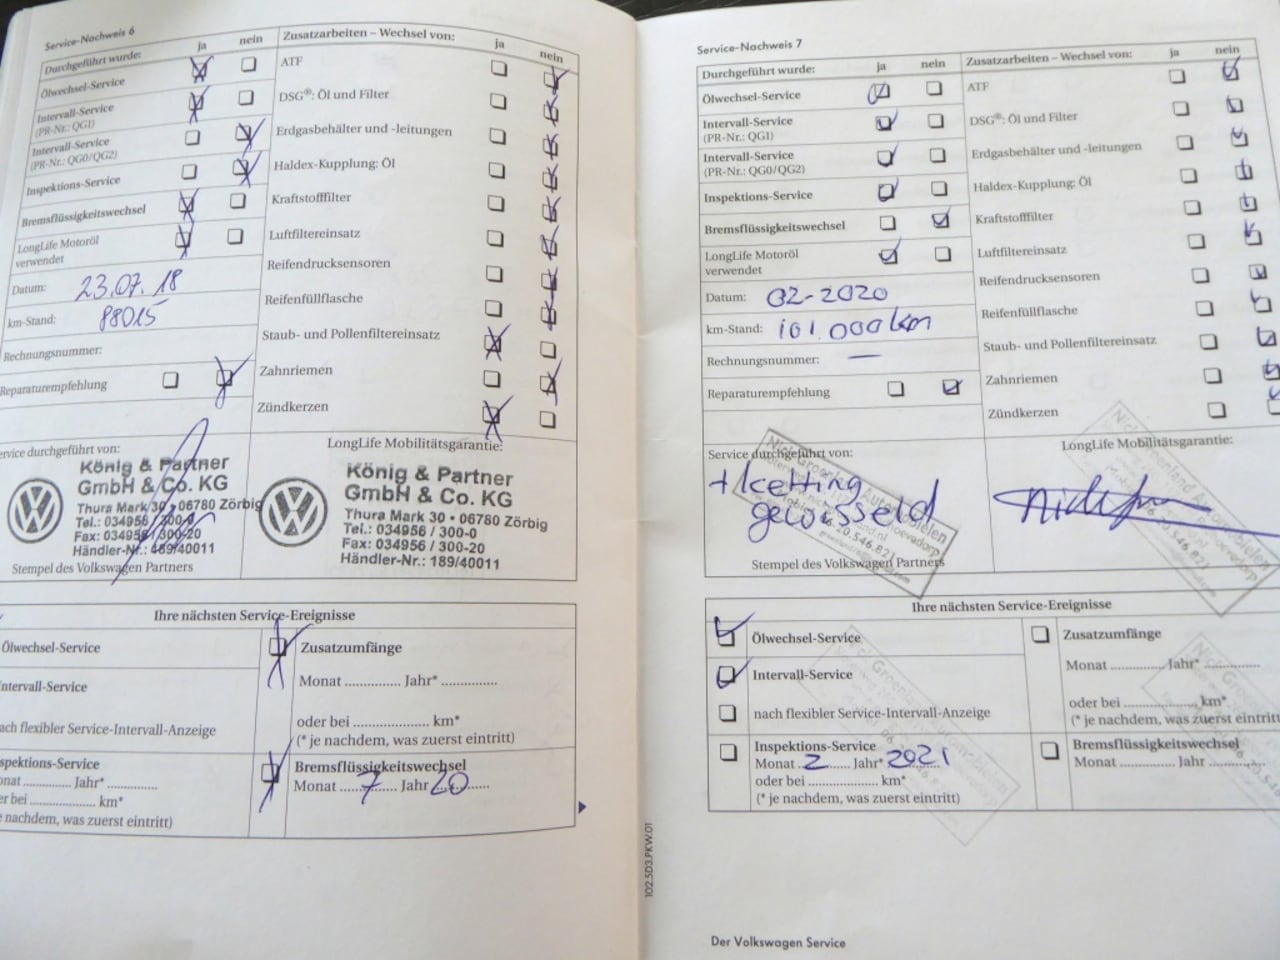 Service-Nachweis 6
Durchgeführt wurde: ja nein
Ölwechsel-Service
Intervall-Service
(PR-Nr.: QG1)
Intervall-Service
(PR-Nr.: QG0/QG2)
Inspektions-Service
Bremsflüssigkeitswechsel
LongLife Motoröl
verwendet
Datum: 23.07.18
km-Stand: 88015
Rechnungsnummer:
Reparaturempfehlung
Zusatzarbeiten – Wechsel von: ja nein
ATF
DSG®: Öl und Filter
Erdgasbehälter und -leitungen
Haldex-Kupplung: Öl
Kraftstofffilter
Luftfiltereinsatz
Reifendrucksensoren
Reifenfüllflasche
Staub- und Pollenfiltereinsatz
Zahnriemen
Zündkerzen
ervice durchgeführt von:
König & Partner
GmbH & Co. KG
Thura Mark 30 • 06780 Zörbig
Tel.: 034956 / 300-0
Fax: 034956 / 300-20
Händler-Nr.: 189/40011
Stempel des Volkswagen Partners
LongLife Mobilitätsgarantie:
König & Partner
GmbH & Co. KG
Thura Mark 30 • 06780 Zörbig
Tel.: 034956 / 300-0
Fax: 034956 / 300-20
Händler-Nr.: 189/40011
Ihre nächsten Service-Ereignisse
Ölwechsel-Service
ntervall-Service
ach flexibler Service-Intervall-Anzeige
spektions-Service
onat ............... Jahr* ...............
er bei .................... km*
e nachdem, was zuerst eintritt)
Zusatzumfänge
Monat ............... Jahr* ...............
oder bei .................... km*
(* je nachdem, was zuerst eintritt)
Bremsflüssigkeitswechsel
Monat 7 Jahr 20
Service-Nachweis 7
Durchgeführt wurde: ja nein
Ölwechsel-Service
Intervall-Service
(PR-Nr.: QG1)
Intervall-Service
(PR-Nr.: QG0/QG2)
Inspektions-Service
Bremsflüssigkeitswechsel
LongLife Motoröl
verwendet
Datum: 02-2020
km-Stand: 101.000km
Rechnungsnummer: —
Reparaturempfehlung
Zusatzarbeiten – Wechsel von: ja nein
ATF
DSG®: Öl und Filter
Erdgasbehälter und -leitungen
Haldex-Kupplung: Öl
Kraftstofffilter
Luftfiltereinsatz
Reifendrucksensoren
Reifenfüllflasche
Staub- und Pollenfiltereinsatz
Zahnriemen
Zündkerzen
Service durchgeführt von:
+ ketting
gewisseld
Nick Groenland Automobielen
Stempel des Volkswagen Partners
LongLife Mobilitätsgarantie:
Nick Groenland Automobielen
Ihre nächsten Service-Ereignisse
Ölwechsel-Service
Intervall-Service
nach flexibler Service-Intervall-Anzeige
Inspektions-Service
Monat 2 Jahr* 2021
oder bei .................... km*
(* je nachdem, was zuerst eintritt)
Zusatzumfänge
Monat ............... Jahr* ...............
oder bei .................... km*
(* je nachdem, was zuerst eintritt
Bremsflüssigkeitswechsel
Monat ............... Jahr ...............
Nick Groenland Automobielen
102.5D3.PKW.01
Der Volkswagen Service